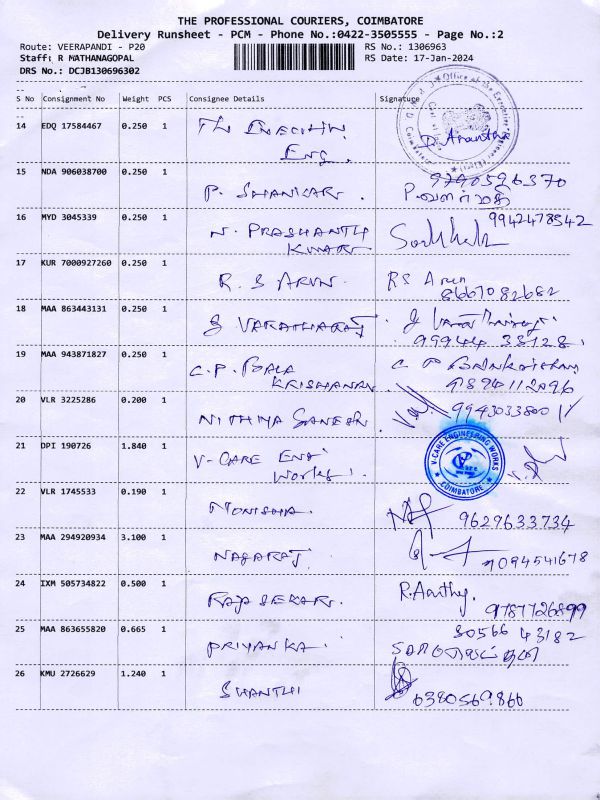 THE PROFESSIONAL COURIERS, COIMBATORE
Delivery Runsheet - PCM - Phone No.:0422-3505555 - Page No.:2
Route: VEERAPANDI - P20
RS No.: 1306963
Staff: R MATHANAGOPAL
RS Date: 17-Jan-2024
DRS No.: DCJB130696302
S No Consignment No Weight PCS Consignee Details Signature
14 EDQ 17584467 0.250 1
Eng.
D. Anantha
15 NDA 906038700 0.250 1 P. SHANKAR.
9790526370
P. வளர்மதி
16 MYD 3045339 0.250 1 N. PRASHANTH
KUMAR
9942478542
17 KUR 7000927260 0.250 1 R. S ARUN. RS Arun
8667082682
18 MAA 863443131 0.250 1 G VARATHARAJ
99944 33128
19 MAA 943871827 0.250 1 C. P. BALA
KRISHANAN
9894112096
20 VLR 3225286 0.200 1 NITHIYA GANESH. 9943033800
21 DPI 190726 1.840 1 V-CARE ENG
Works.
V-CARE ENGINEERING WORKS
COIMBATORE
22 VLR 1745533 0.190 1 MONISHA. 9629633734
23 MAA 294920934 3.100 1 NAGARAJ. 9094541678
24 IXM 505734822 0.500 1 RAJASEKAR. R. Aarthy.
9787726899
25 MAA 863655820 0.665 1 PRIYANKA. 80566 43182
26 KMU 2726629 1.240 1 SHANTHI 6380569866